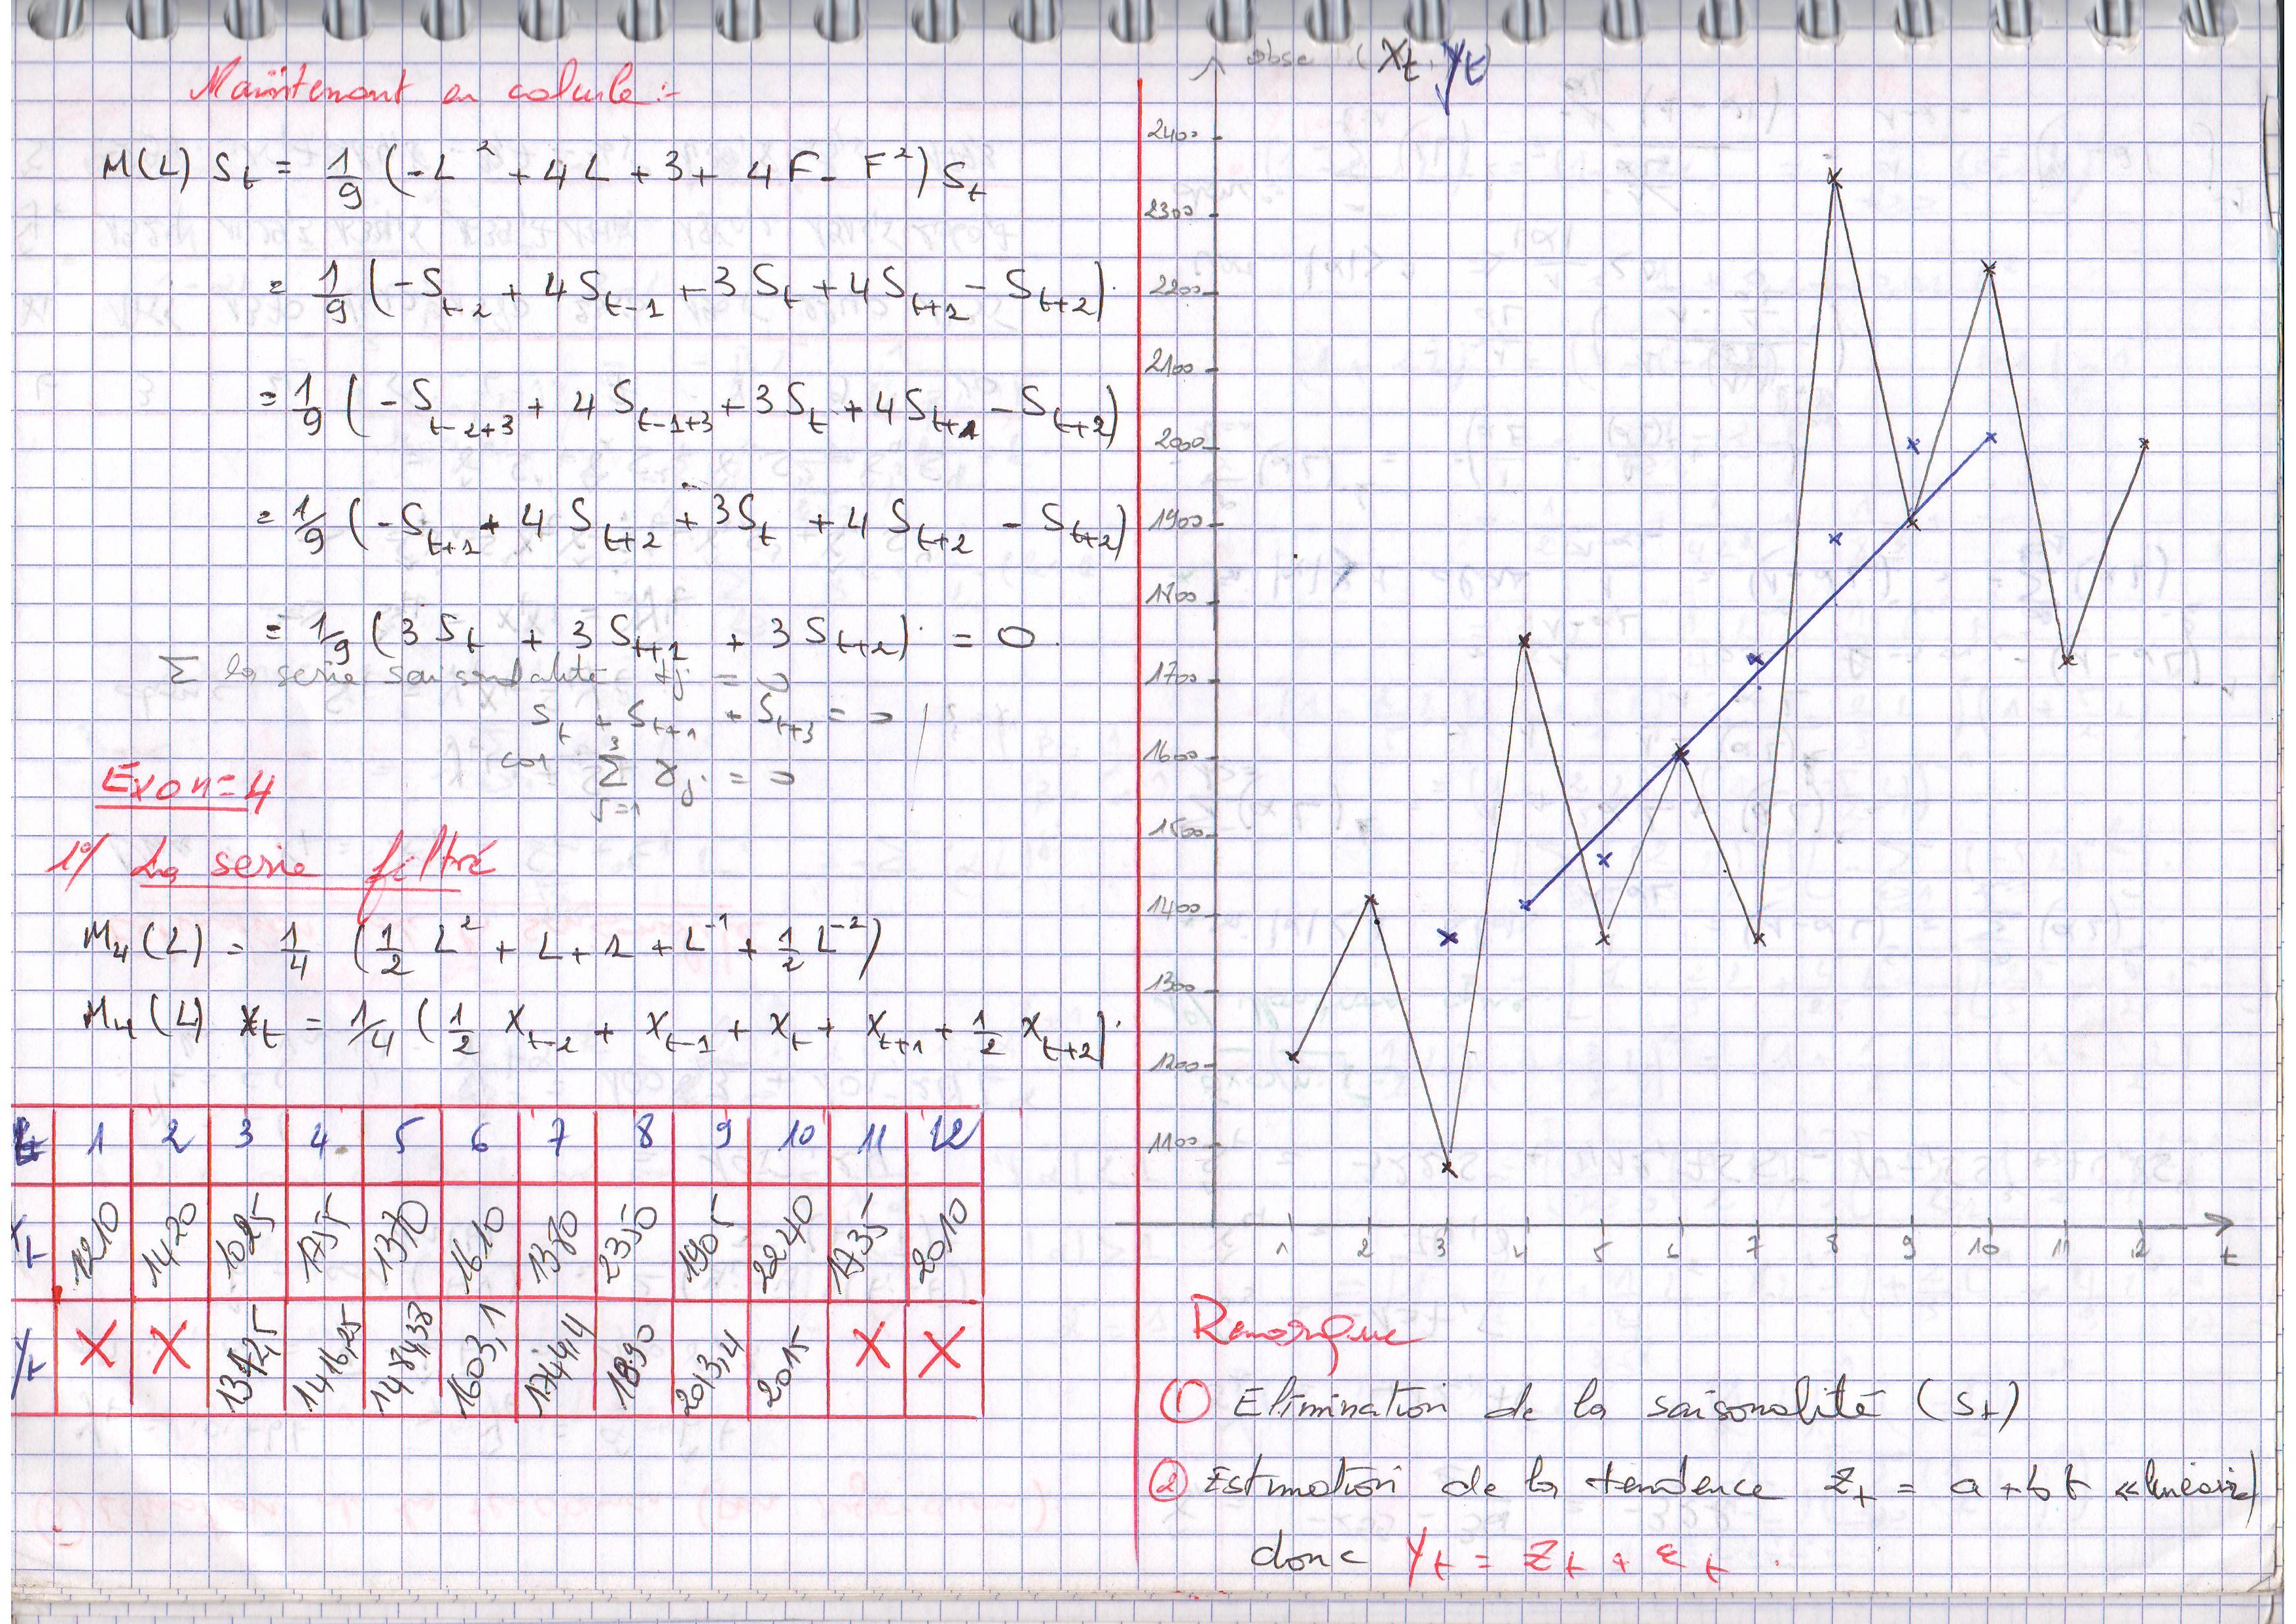 Maintenant on calcule :-
M(L) S_t = 1/9 (-L² + 4L + 3 + 4F - F²) S_t
= 1/9 (-S_{t-2} + 4 S_{t-1} + 3 S_t + 4 S_{t+1} - S_{t+2}).
= 1/9 (-S_{t-2+3} + 4 S_{t-1+3} + 3 S_t + 4 S_{t+1} - S_{t+2})
= 1/9 (-S_{t+1} + 4 S_{t+2} + 3 S_t + 4 S_{t+2} - S_{t+2})
= 1/9 (3 S_t + 3 S_{t+1} + 3 S_{t+2}) = 0.
Σ la serie saisonalité = 0
S_t + S_{t+1} + S_{t+3} = 0
car Σ_{j=1}^{3} γ_j = 0
Exo n=4
1°/ La serie filtré
M₄(L) = 1/4 (1/2 L² + L + 1 + L⁻¹ + 1/2 L⁻²)
M₄(L) X_t = 1/4 (1/2 X_{t-2} + X_{t-1} + X_t + X_{t+1} + 1/2 X_{t+2}).
t 1 2 3 4 5 6 7 8 9 10 11 12
X_t 1210 1420 1085 1755 1370 1610 1380 2350 1905 2240 1735 2010
Y_t X X 1372,5 1416,25 1484,38 1603,1 1744,4 1890 2013,4 2015 X X
obse (X_t, Y_t)
2400
2300
2200
2100
2000
1900
1800
1700
1600
1500
1400
1300
1200
1100
1 2 3 4 5 6 7 8 9 10 11 12 t
Remarque
① Elimination de la saisonalité (S_t)
② Estimation de la tendence Z_t = a + b t «linéaire»
donc Y_t = Z_t + ε_t .